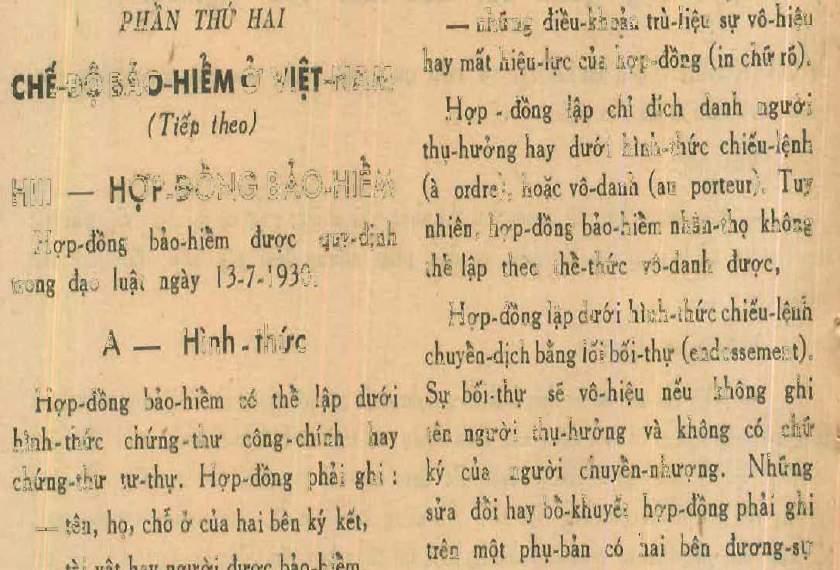 PHẦN THỨ HAI
CHẾ-ĐỘ BẢO-HIỂM Ở VIỆT-NAM
(Tiếp theo)
— HỢP-ĐỒNG BẢO-HIỂM
Hợp-đồng bảo-hiểm được quy-định
trong đạo luật ngày 13-7-1930.
A — Hình-thức
Hợp-đồng bảo-hiểm có thể lập dưới
hình-thức chứng-thư công-chính hay
chứng-thư tư-thự. Hợp-đồng phải ghi :
— tên, họ, chỗ ở của hai bên ký kết,
vật hay người được bảo-hiểm
— những điều-khoản trù-liệu sự vô-hiệu
hay mất hiệu-lực của hợp-đồng (in chữ rõ).
Hợp-đồng lập chỉ đích danh người
thụ-hưởng hay dưới hình-thức chiếu-lệnh
(à ordre), hoặc vô-danh (au porteur). Tuy
nhiên, hợp-đồng bảo-hiểm nhân-thọ không
thể lập theo thể-thức vô-danh được,
Hợp-đồng lập dưới hình-thức chiếu-lệnh
chuyển-dịch bằng lối bối-thự (endossement).
Sự bối-thự sẽ vô-hiệu nếu không ghi
tên người thụ-hưởng và không có chữ
ký của người chuyển-nhượng. Những
sửa đổi hay bổ-khuyết hợp-đồng phải ghi
trên một phụ-bản có hai bên đương-sự